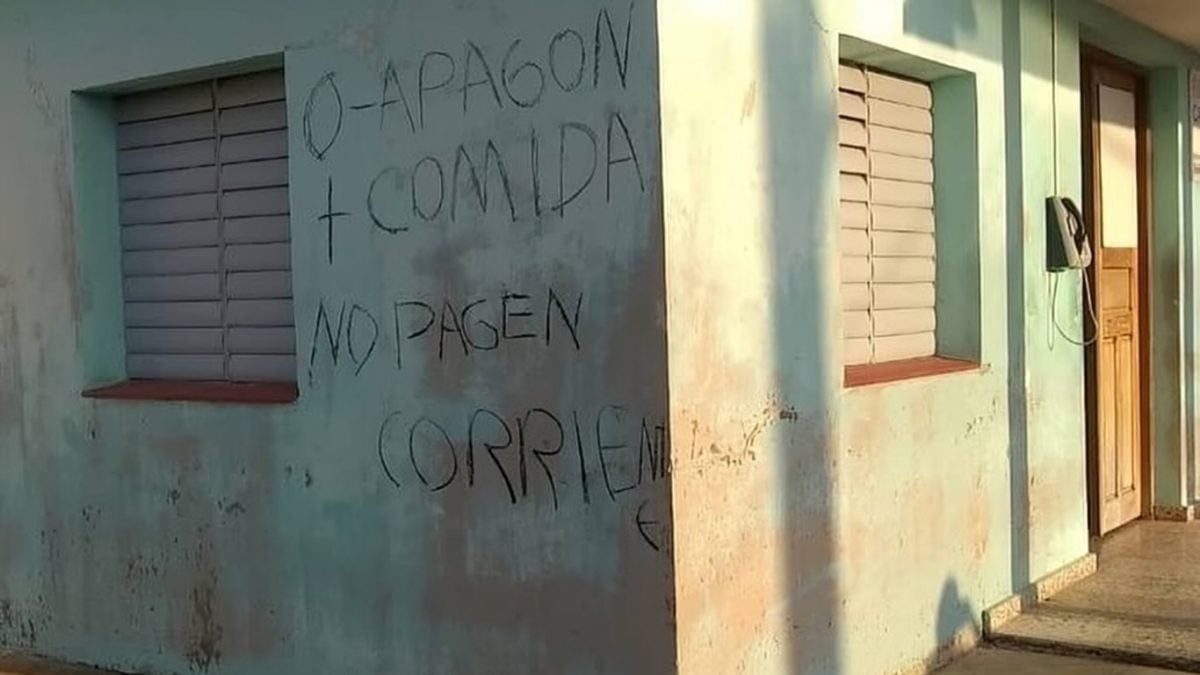 0-APAGON
+ COMIDA
NO PAGEN
CORRIENT
E